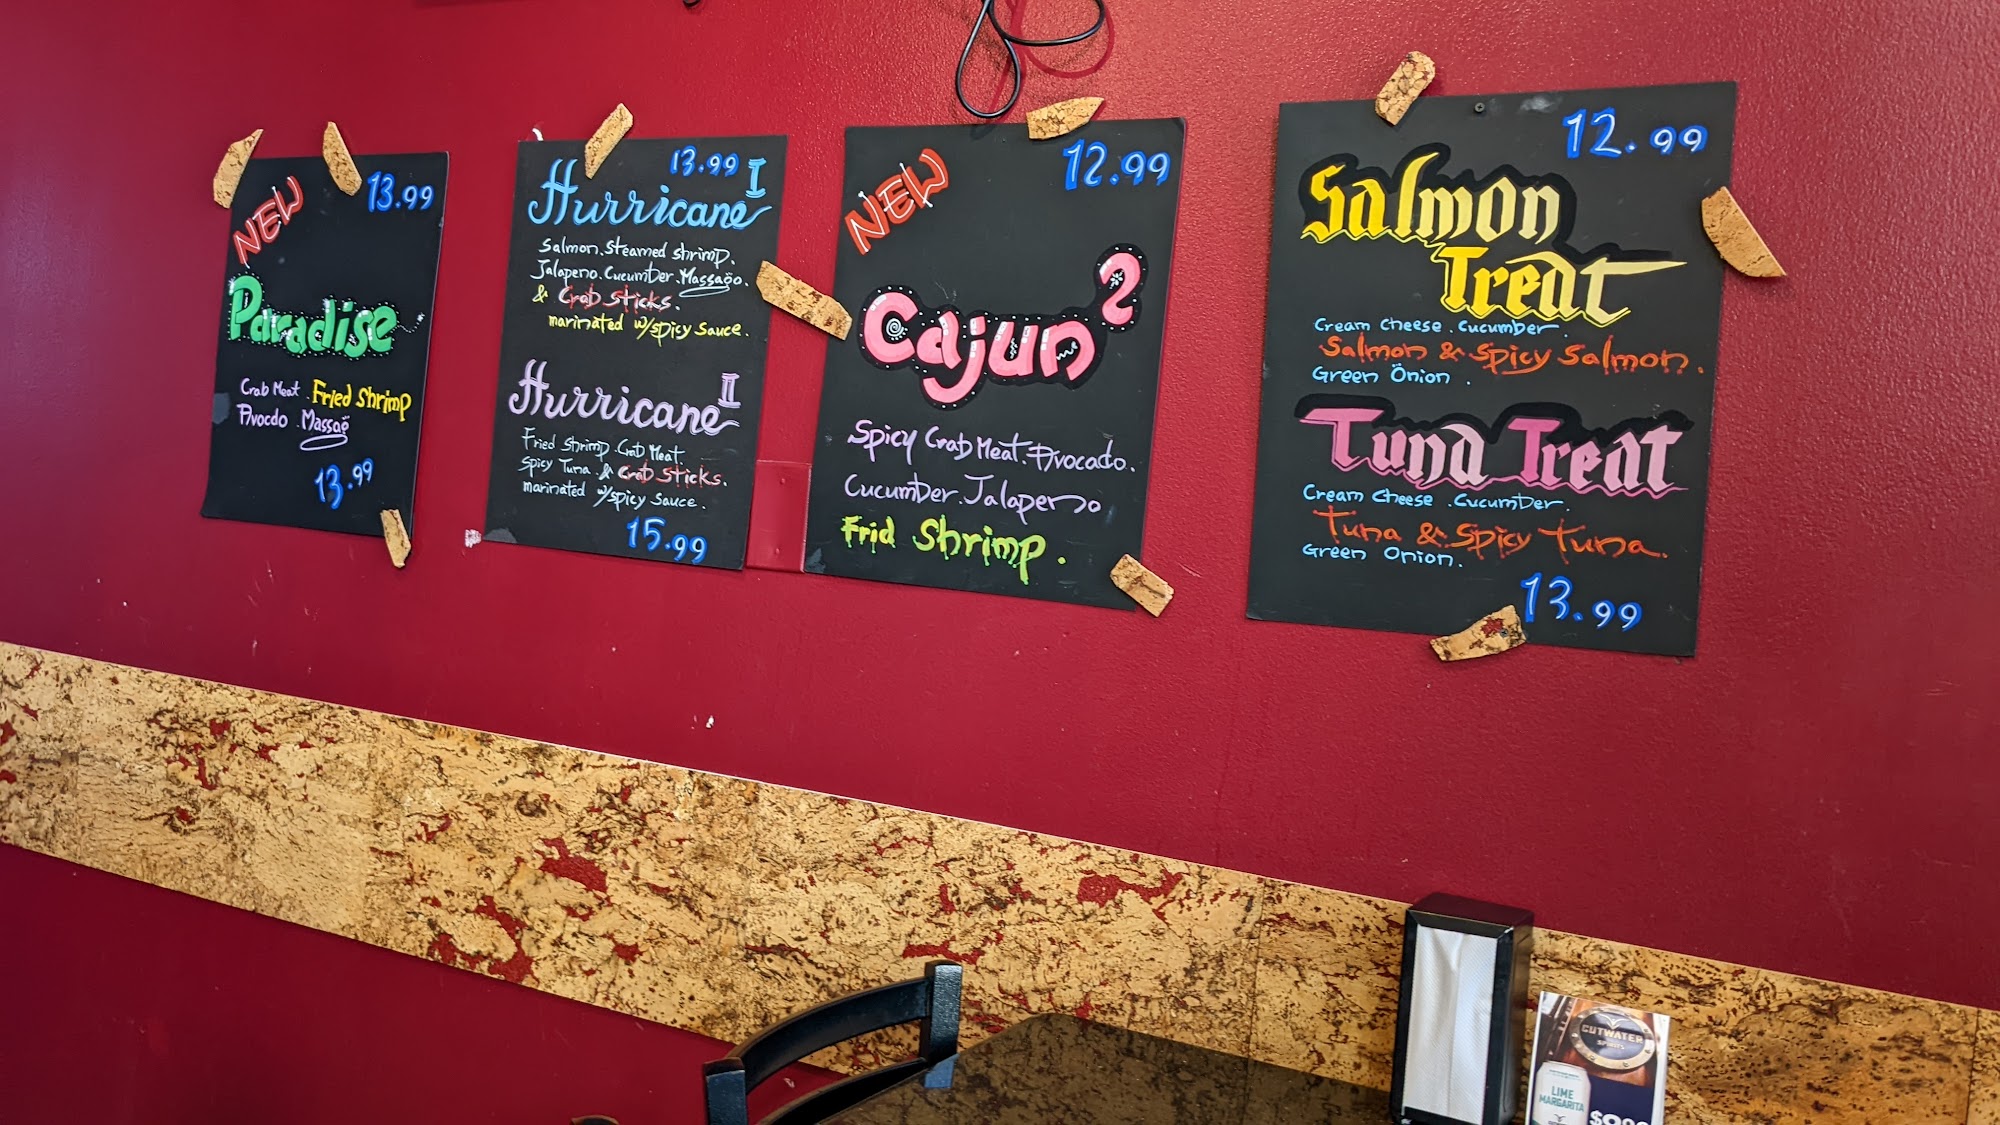 NEW
13.99
Paradise
Crab Meat . Fried Shrimp
Avocdo . Massago
13.99
13.99
Hurricane I
Salmon. Steamed shrimp.
Jalapeno. Cucumber. Massago.
& Crab Sticks.
marinated w/spicy sauce.
Hurricane II
Fried Shrimp. Crab Meat.
Spicy Tuna. & Crab Sticks.
marinated w/spicy sauce.
15.99
NEW
12.99
Cajun 2
Spicy Crab Meat. Avocado.
Cucumber. Jalapeno
Frid Shrimp.
12.99
Salmon
Treat
Cream Cheese. Cucumber
Salmon & Spicy Salmon.
Green Onion.
Tuna Treat
Cream Cheese. Cucumber.
Tuna & Spicy Tuna.
Green Onion.
13.99
CUTWATER
SPIRITS
LIME
MARGARITA